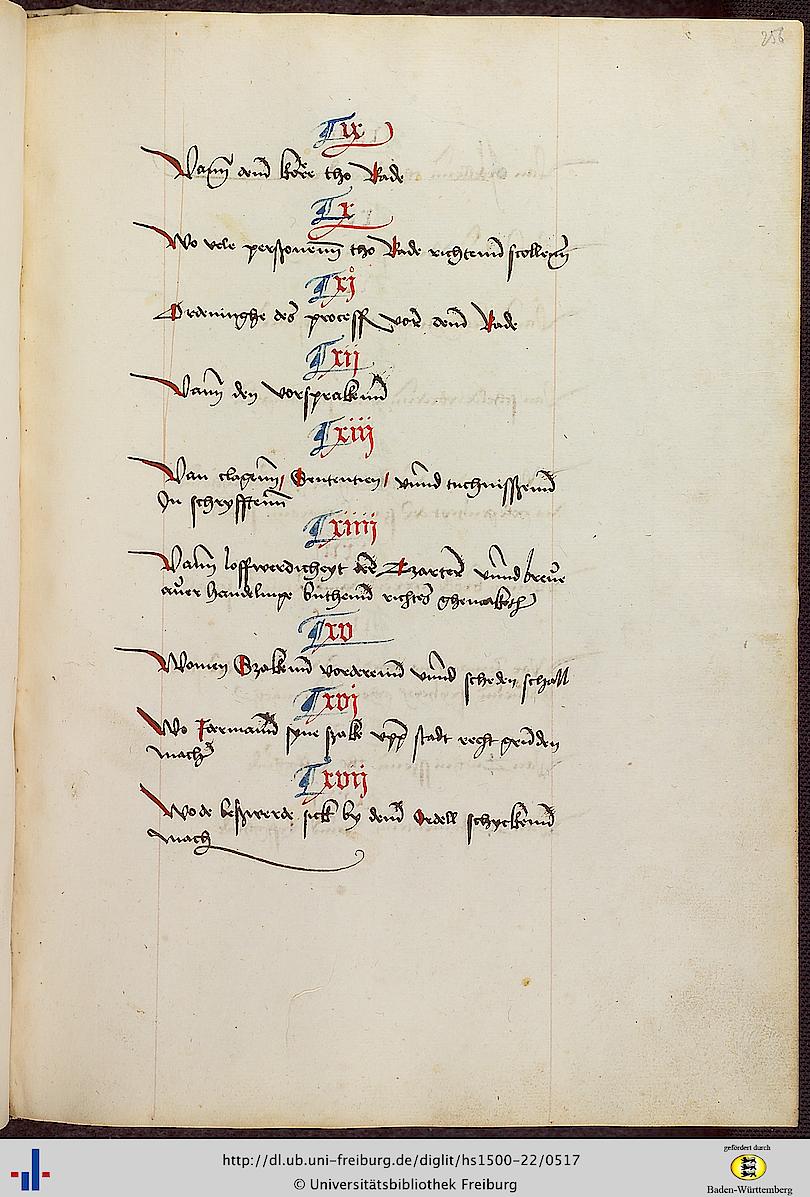 256
ix
Vann dem kore tho Rade
x
Wo vele personenn tho Rade richtenn scollenn
xj
Ordeninghe des process vor dem Rade
xij
Vann den vorsprakenn
xiij
Van clagenn, Sententien, unnd tuchnissenn
In schryfftenn
xiiij
Vann loffwerdicheyt der Czarter unnd breve
aver handelinge butenn richtes ghemaketh
xv
Wo men Szakenn vorderenn unnd scheden schall
xvj
Wo Jderman syne szake upp stadt recht grunden
mach
xvij
Wo de beszwerde sick by dem Ordell schyckenn
mach
http://dl.ub.uni-freiburg.de/diglit/hs1500-22/0517
© Universitätsbibliothek Freiburg
gefördert durch
Baden-Württemberg